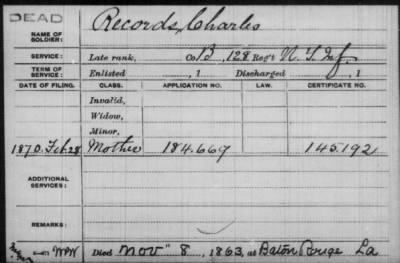 DEAD
NAME OF SOLDIER: Records, Charles
SERVICE: Late rank, Co B, 128 Reg't N. Y. Inf.
TERM OF SERVICE: Enlisted , 1 Discharged , 1
DATE OF FILING. CLASS. APPLICATION NO. LAW. CERTIFICATE NO.
Invalid,
Widow,
Minor,
1870. Feb. 28 Mother 184.669 145.192
ADDITIONAL SERVICES:
REMARKS:
Died Nov 8, 1863, at Baton Rouge La